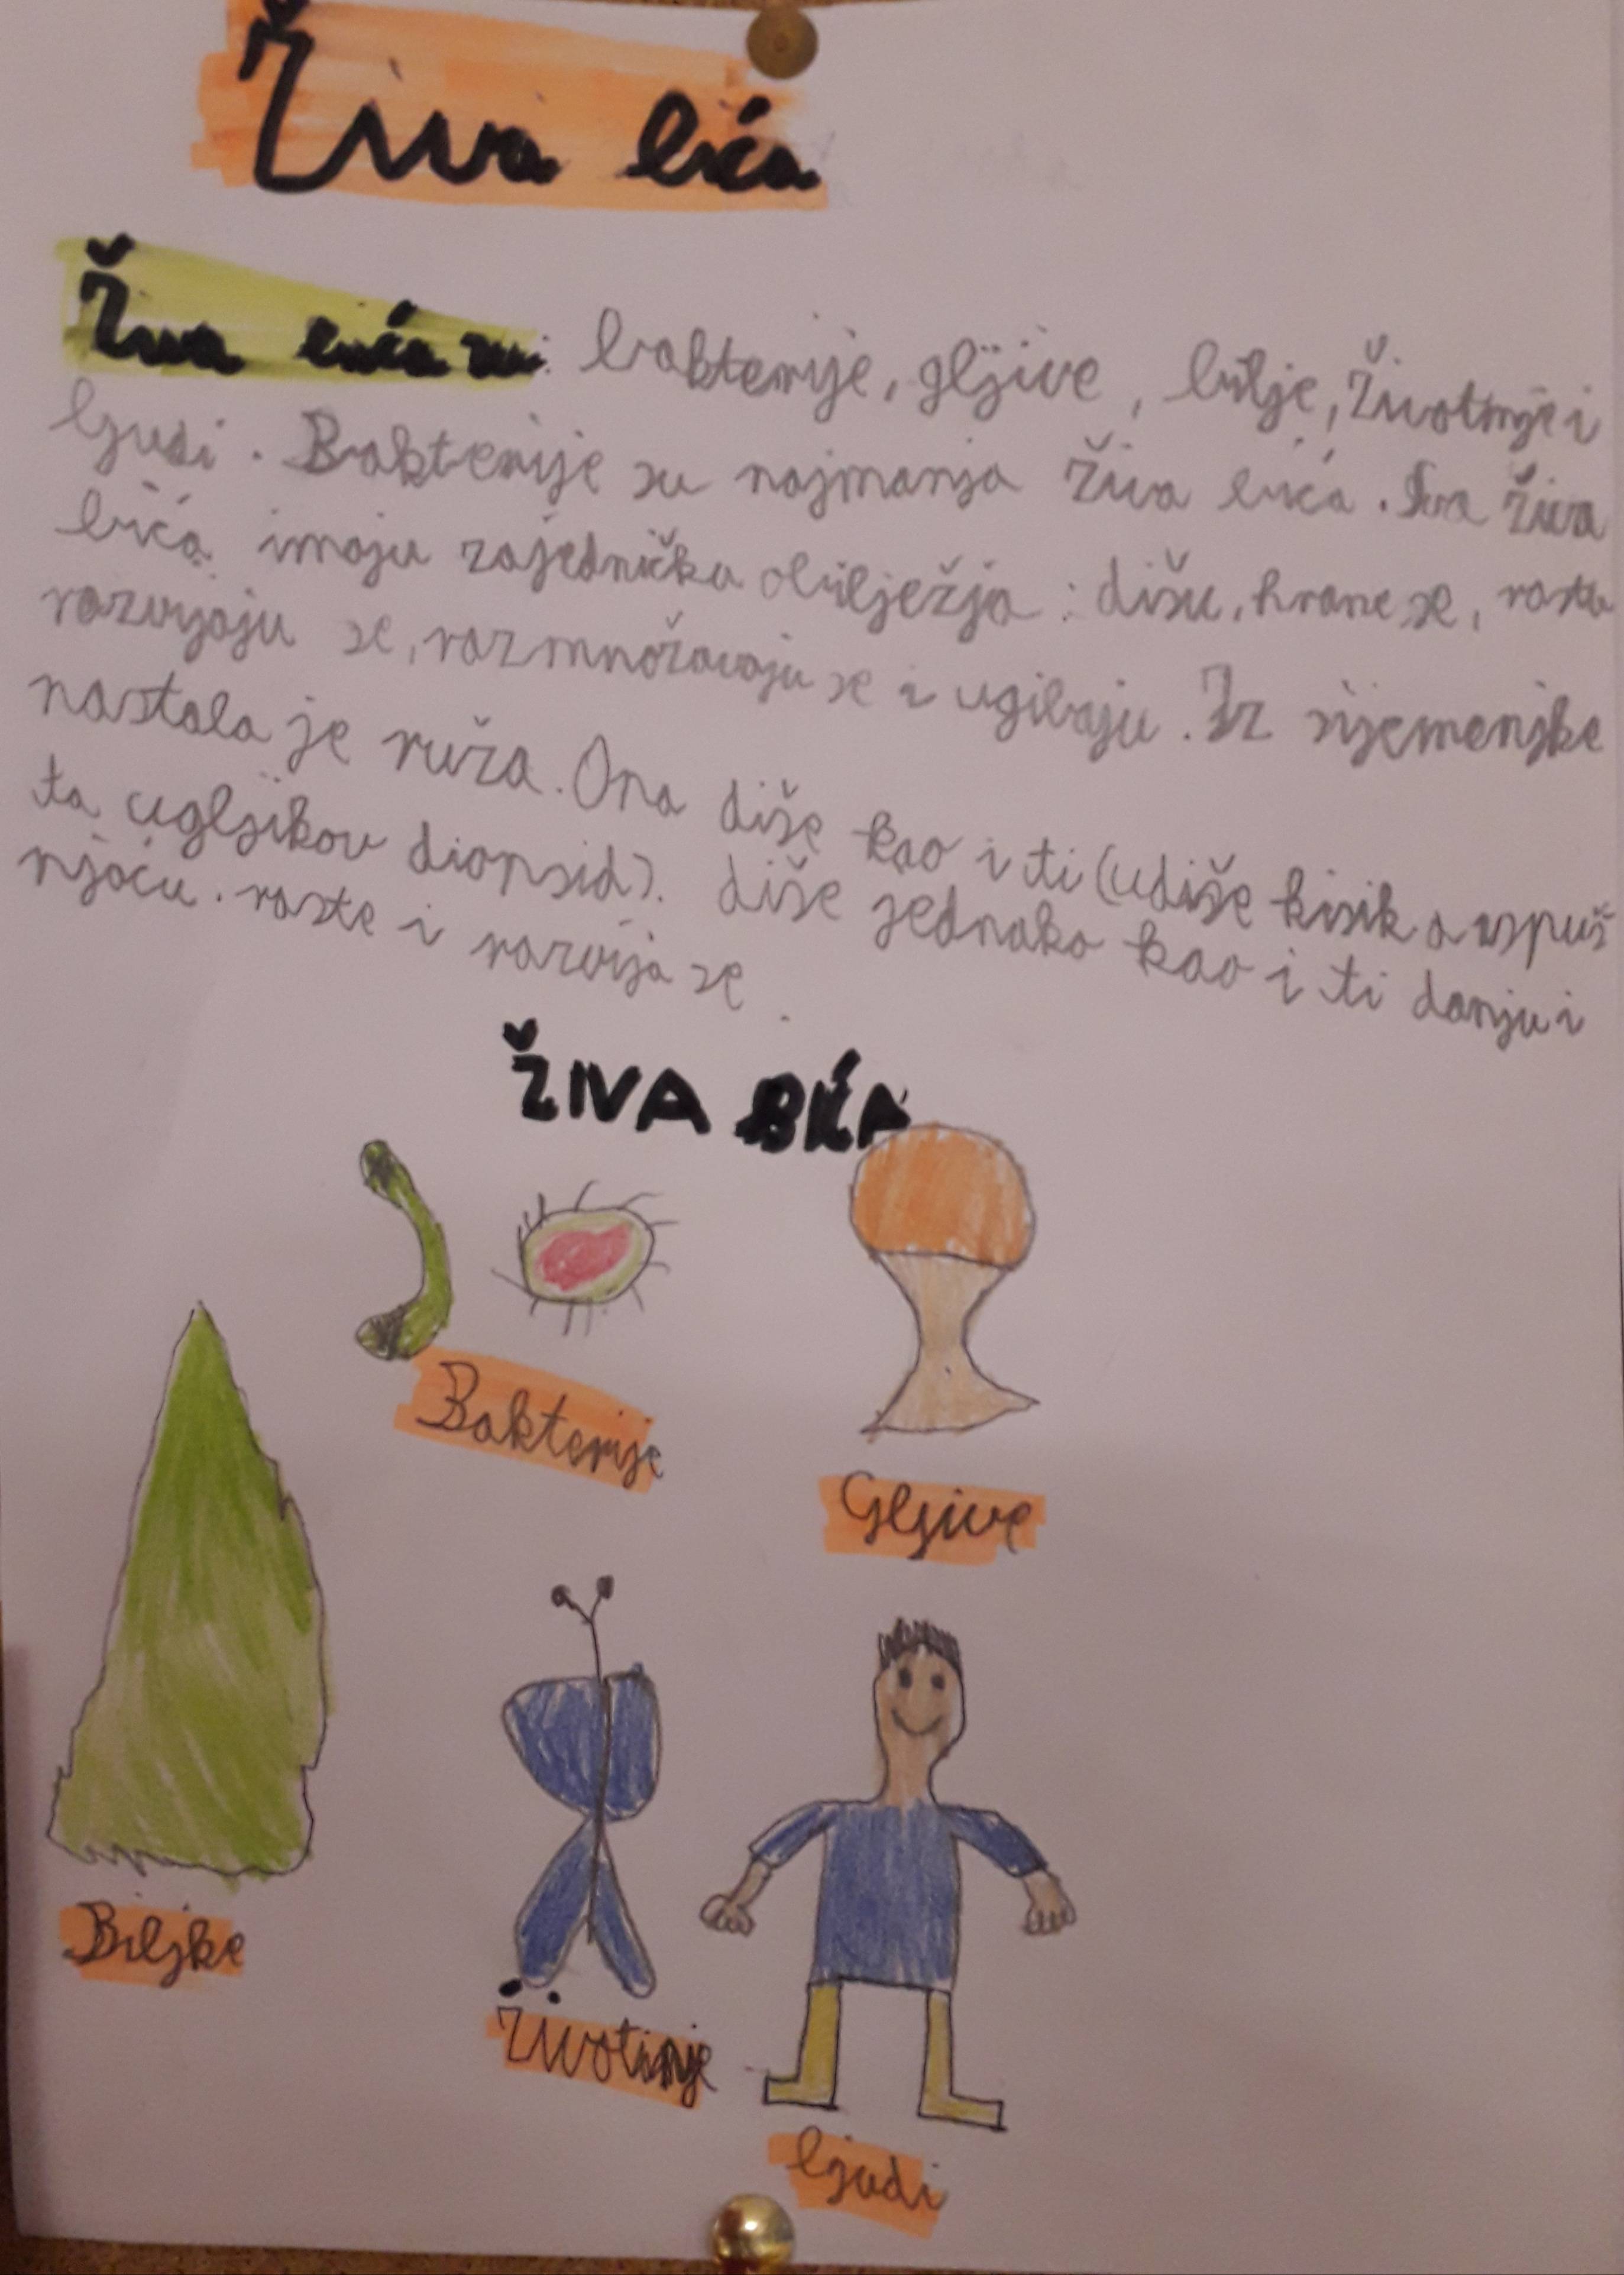 Živa bića
Živa bića su: bakterije, gljive, bilje, životinje i
ljudi. Bakterije su najmanja živa bića. Sva živa
bića imaju zajednička obilježja: dišu, hrane se, rastu
razvijaju se, razmnožavaju se i ugibaju. Iz sjemenjke
nastala je ruža. Ona diše kao i ti (udiše kisik a ispuš
ta ugljikov diopsid). diše jednako kao i ti danju i
njoću. raste i razvija se.
ŽIVA BIĆA
Bakterije
Gljive
Biljke
Životinje
ljudi